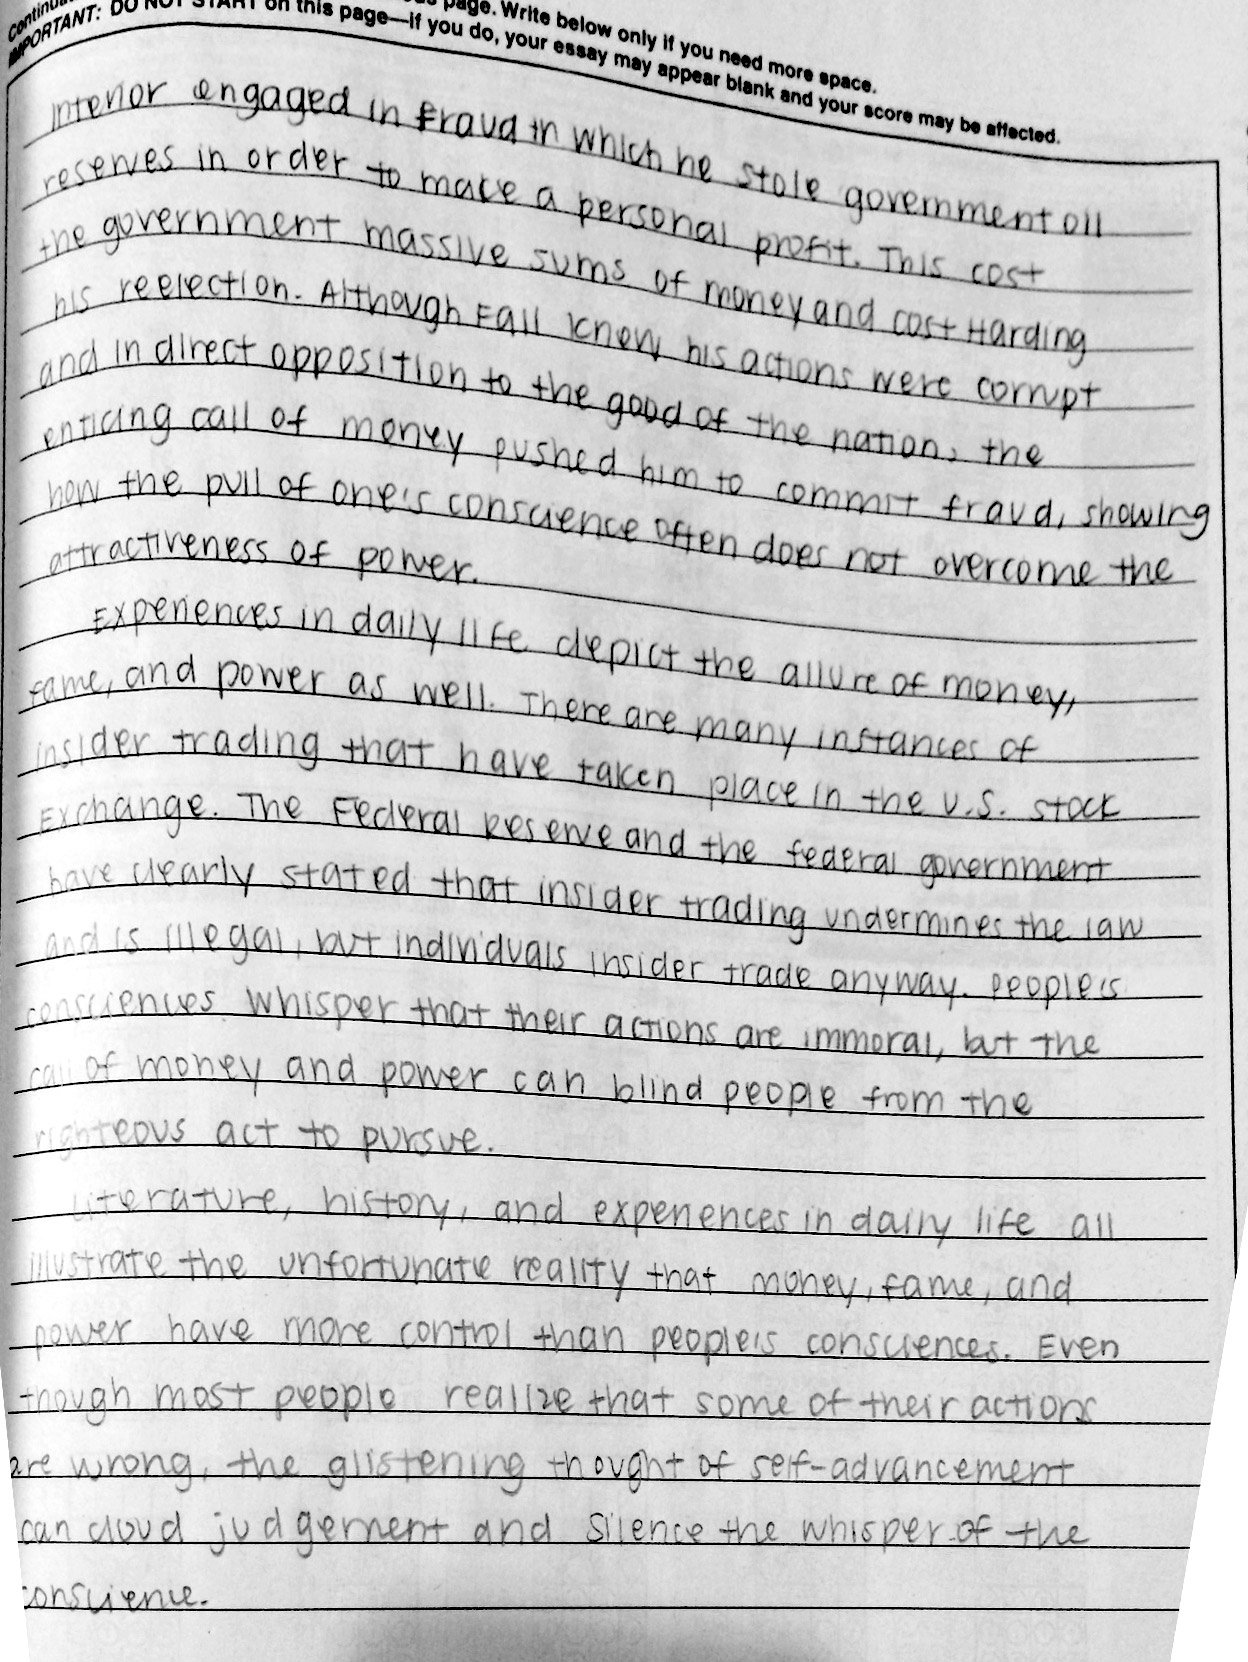 page. Write below only if you need more space.
IMPORTANT: DO NOT START on this page—if you do, your essay may appear blank and your score may be affected.
Interior engaged in fraud in which he stole government oil
reserves in order to make a personal profit. This cost
the government massive sums of money and cost Harding
his reelection. Although Fall knew his actions were corrupt
and in direct opposition to the good of the nation, the
enticing call of money pushed him to commit fraud, showing
how the pull of one's conscience often does not overcome the
attractiveness of power.
Experiences in daily life depict the allure of money,
fame, and power as well. There are many instances of
insider trading that have taken place in the U.S. stock
Exchange. The Federal Reserve and the federal government
have clearly stated that insider trading undermines the law
and is illegal, but individuals insider trade anyway. People's
consciences whisper that their actions are immoral, but the
call of money and power can blind people from the
righteous act to pursue.
Literature, history, and experiences in daily life all
illustrate the unfortunate reality that money, fame, and
power have more control than people's consciences. Even
though most people realize that some of their actions
are wrong, the glistening thought of self-advancement
can cloud judgement and silence the whisper of the
conscience.